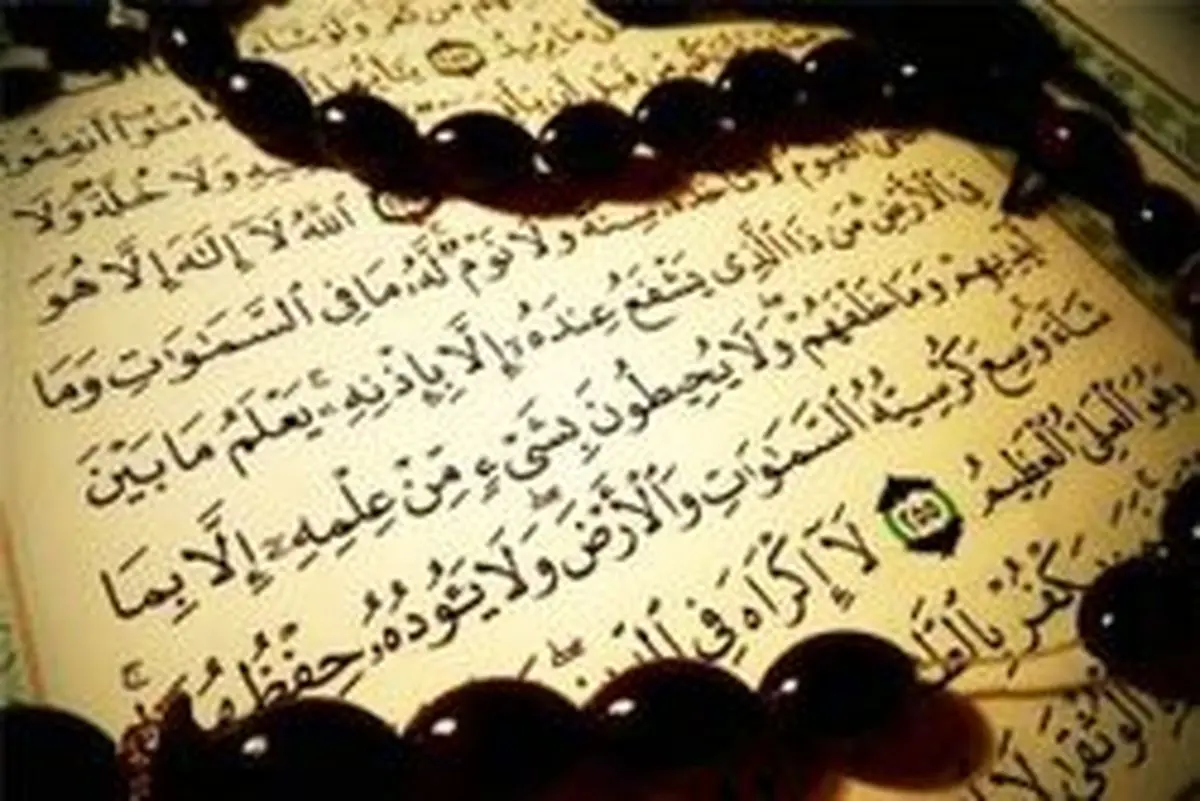 مَّن كَفَرَ وَلَوْ شَآءَ
مَا يُرِيدُ يَٰٓأَيُّهَا
ءَامَنُوٓا۟ أَنفِقُوا۟
وَلَا خُلَّةٌ وَلَا
ٱللَّهُ لَآ إِلَٰهَ إِلَّا هُوَ
ٱلْقَيُّومُ لَا تَأْخُذُهُۥ سِنَةٌ وَلَا نَوْمٌ لَّهُۥ مَا فِى ٱلسَّمَٰوَٰتِ وَمَا
فِى ٱلْأَرْضِ مَن ذَا ٱلَّذِى يَشْفَعُ عِندَهُۥٓ إِلَّا بِإِذْنِهِۦ يَعْلَمُ مَا بَيْنَ
أَيْدِيهِمْ وَمَا خَلْفَهُمْ وَلَا يُحِيطُونَ بِشَىْءٍ مِّنْ عِلْمِهِۦٓ إِلَّا بِمَا
شَآءَ وَسِعَ كُرْسِيُّهُ ٱلسَّمَٰوَٰتِ وَٱلْأَرْضَ وَلَا يَـُٔودُهُۥ حِفْظُهُمَا
وَهُوَ ٱلْعَلِىُّ ٱلْعَظِيمُ ٢٥٥ لَآ إِكْرَاهَ فِى ٱلدِّينِ
يَكْفُرْ
ٱلْوُثْقَىٰ لَا